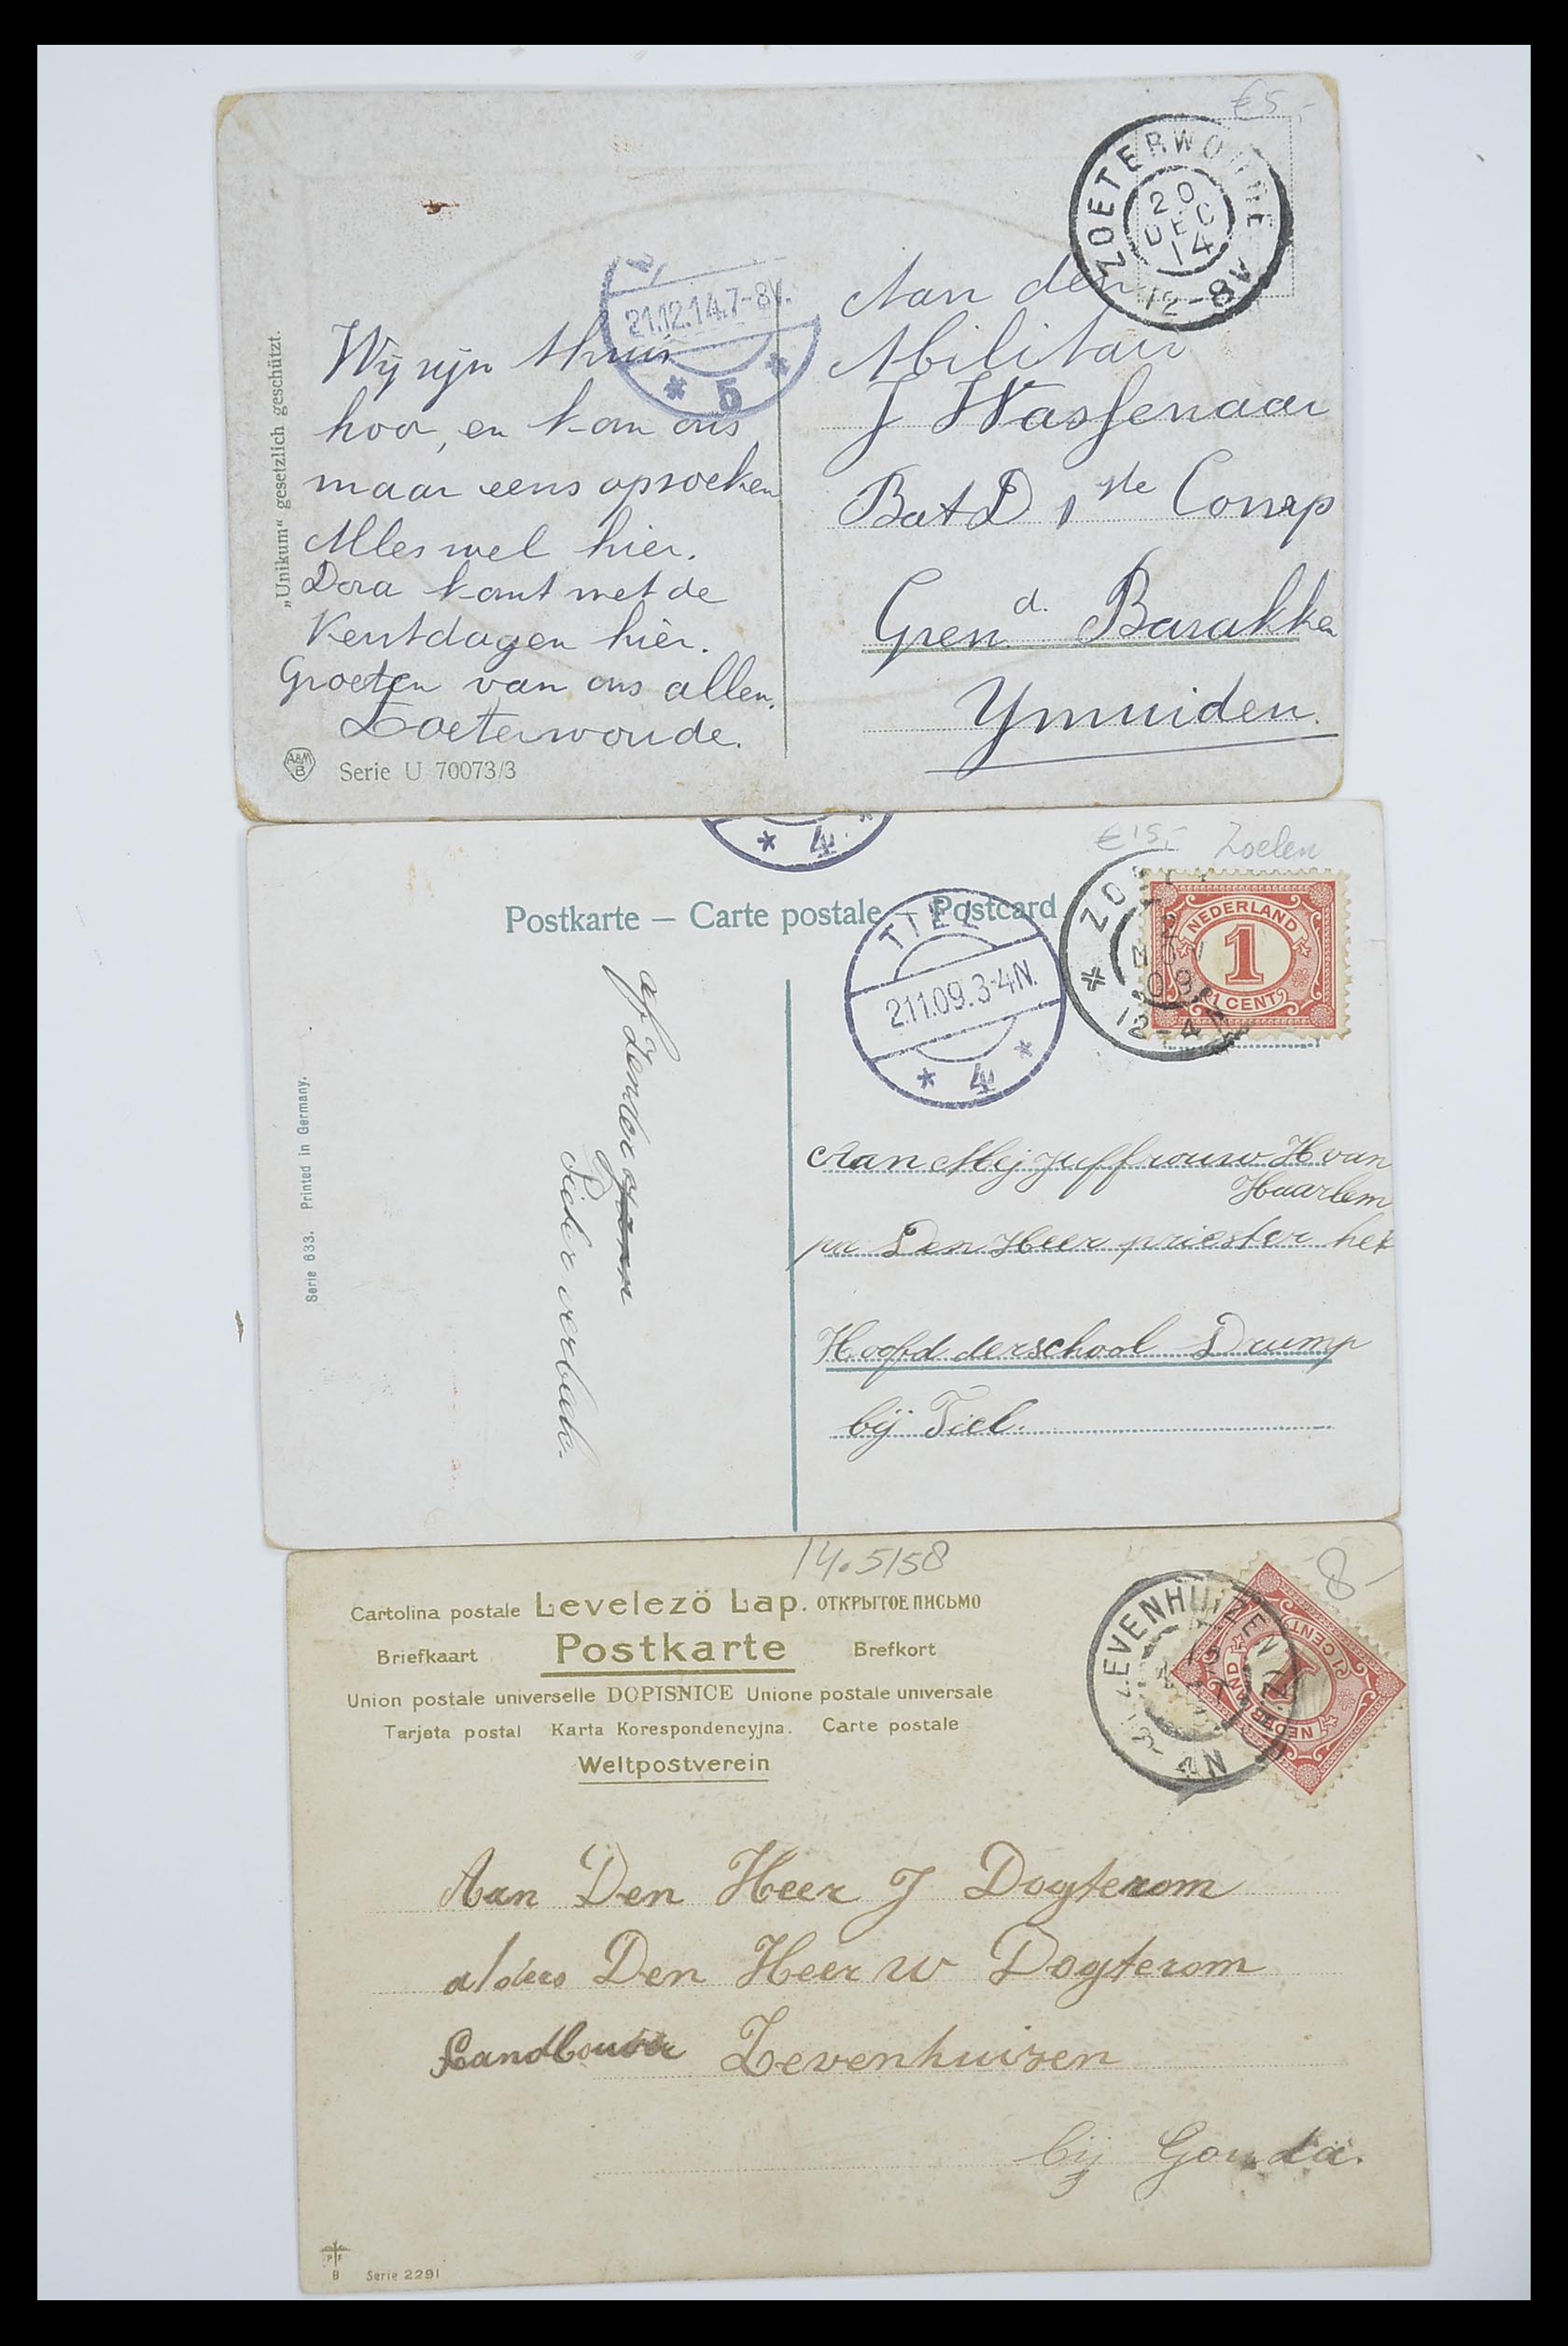 €5,-
ZOETERWOUDE
20
DEC
14
12-8V
21.12.14.7-8V.
* 5 *
„Unikum“ gesetzlich geschützt.
Wij zijn thuis
hoor, en kom ons
maar eens opzoeken
Alles wel hier.
Dora komt met de
Kerstdagen hier.
Groeten van ons allen.
Zoeterwoude.
A&M
B
Serie U 70073/3
Aan den
Militair
J Wassenaar
Bat D 1ste Comp
Gren. d. Barakken
Ymuiden.
* 4 *
€15,- Zoelen
Postkarte – Carte postale – Postcard
TIEL
2.11.09.3-4N.
* 4 *
2
NOV
09
12-4N
NEDERLAND
1
1 CENT
Serie 633. Printed in Germany.
afzender
Aan Mejjuffrouw H van
Haarlem
pa Den Heer priester het
Hoofd der school Drump
bij Tiel.
14.5158
8-
Cartolina postale Levelezö Lap. ОТКРЫТОЕ ПИСЬМО
Briefkaart Postkarte Brefkort
Union postale universelle DOPISNICE Unione postale universale
Tarjeta postal Karta Korespondencyjna. Carte postale
Weltpostverein
EVENHUIZEN (Z.H.
4N
NEDERLAND
1
1 CENT
Aan Den Heer J Dogterom
a/ders Den Heer W Dogterom
Landbouwer Zevenhuizen
bij Gouda.
P F
B
Serie 2291